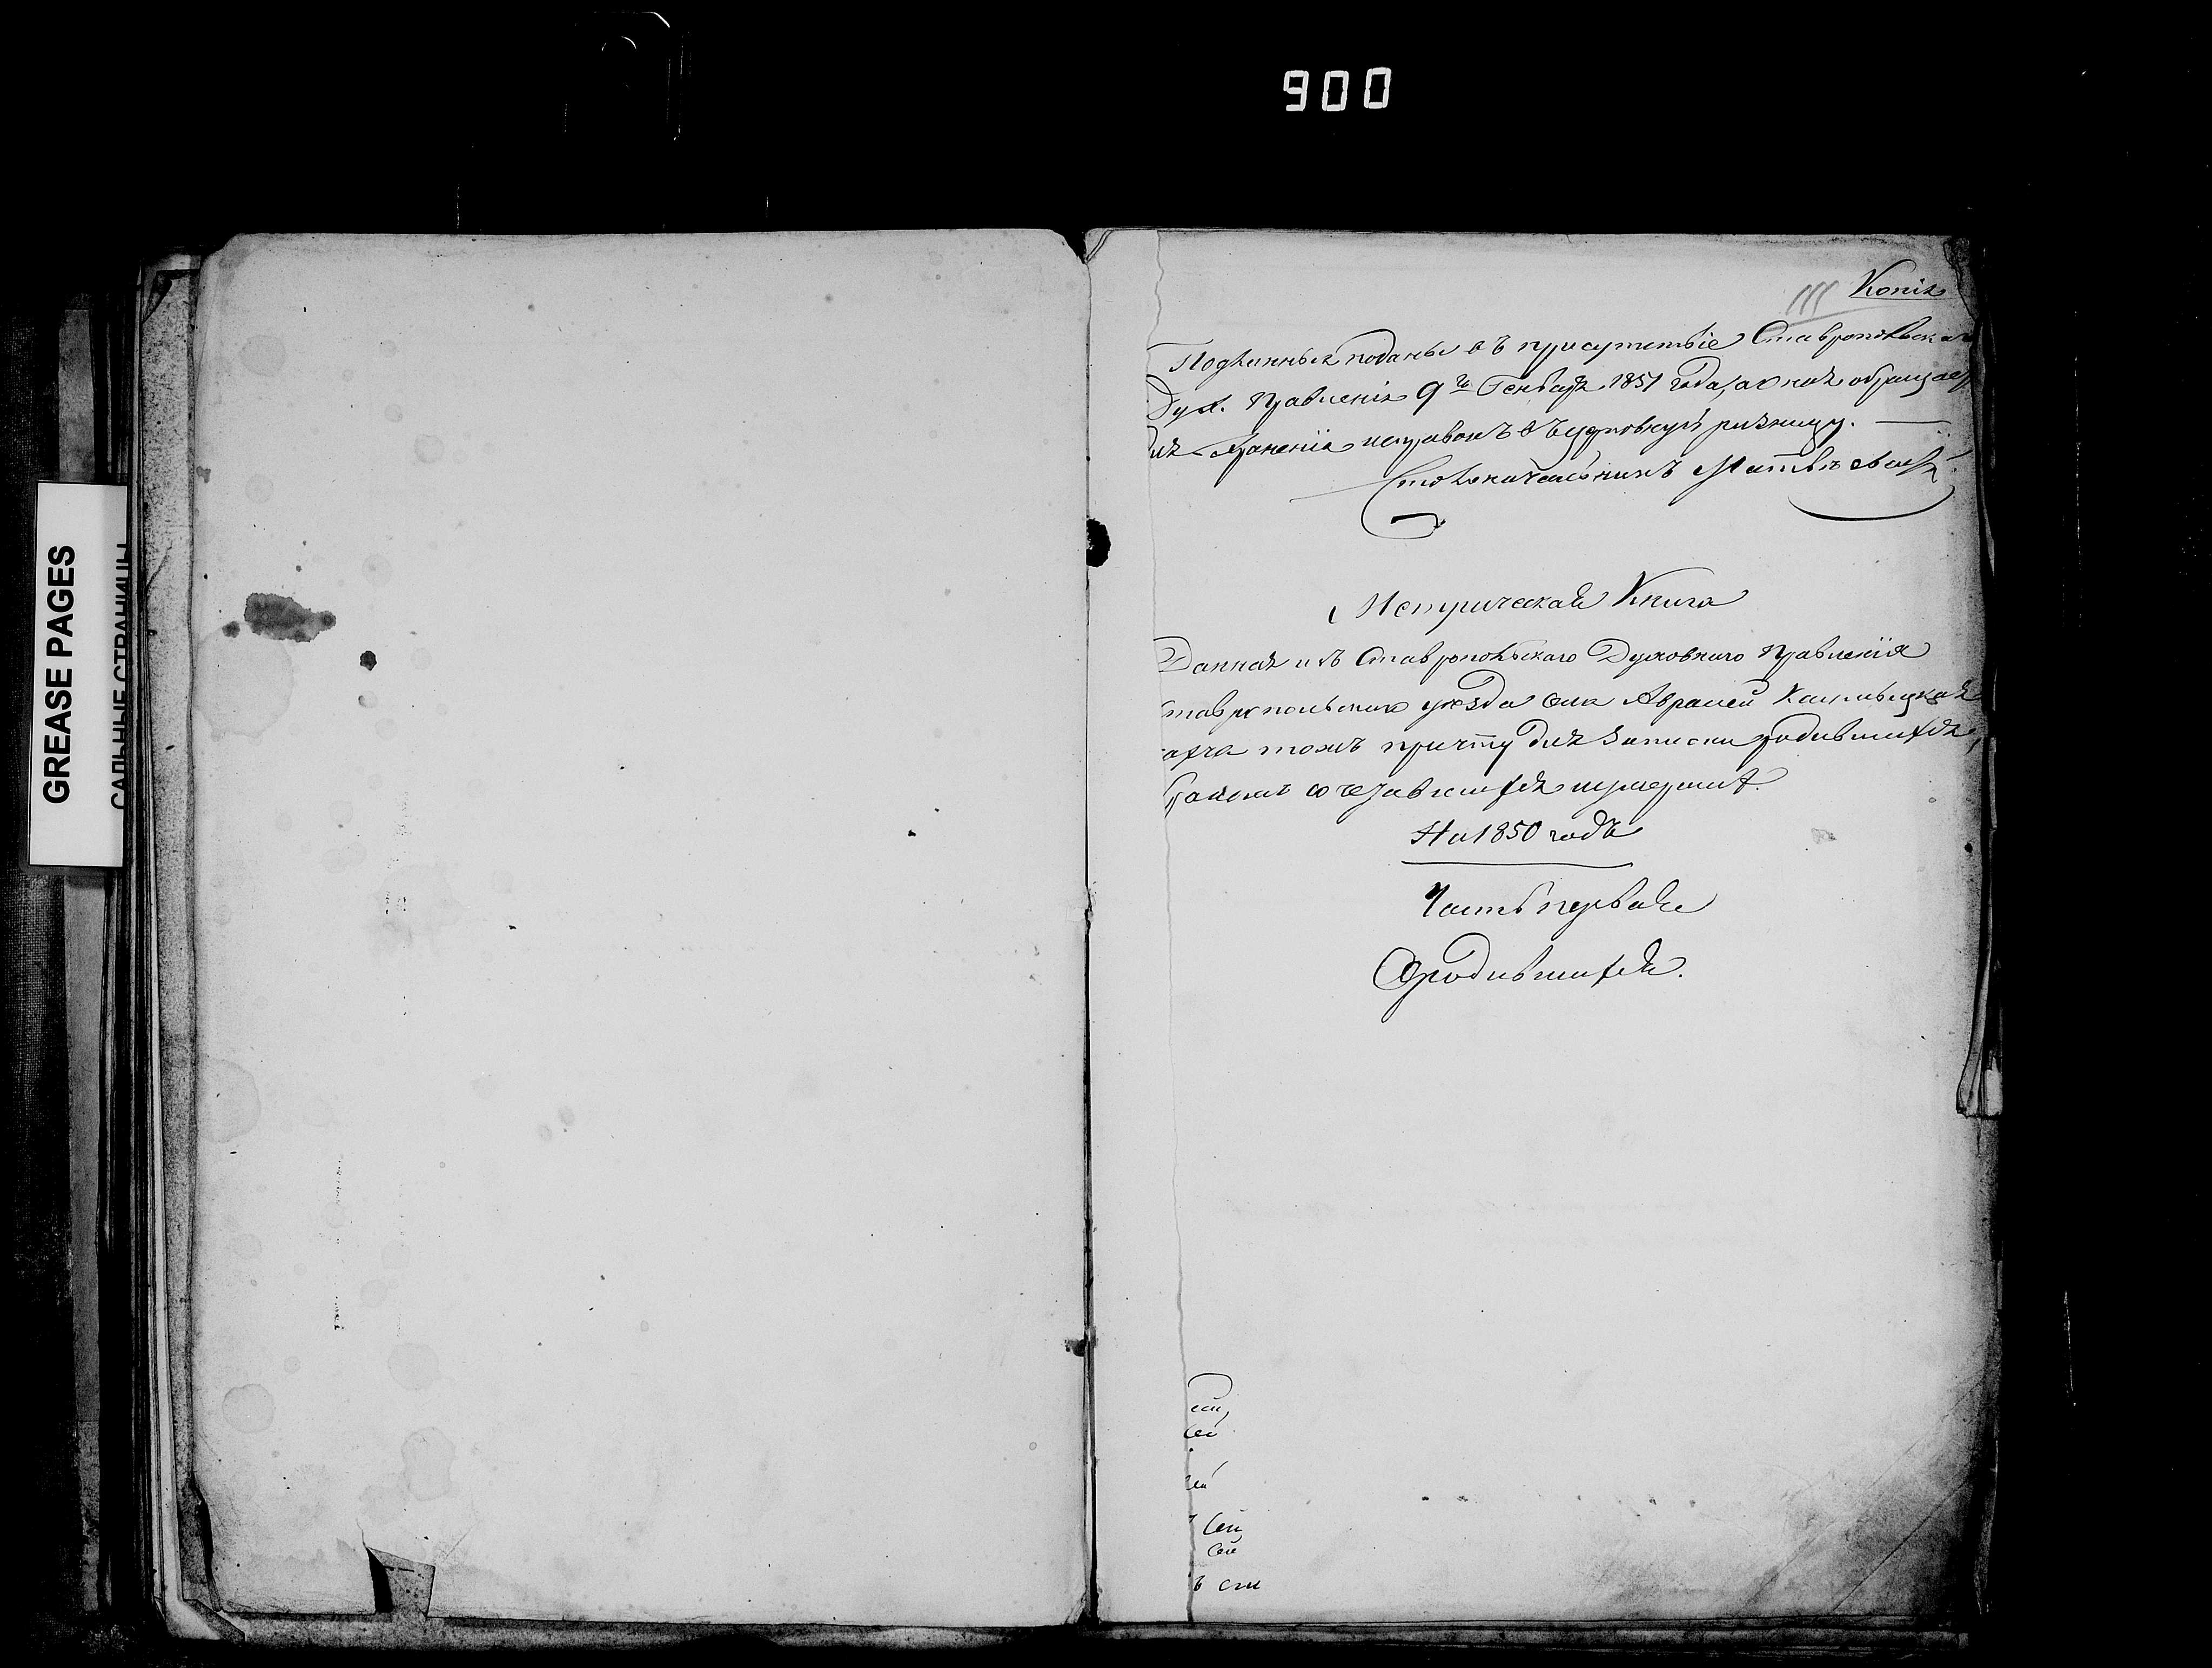 900
GREASE PAGES
САЛЬНЫЕ СТРАНИЦЫ
111 Копія
Подлинныя поданы въ присутствіе Ставропольскаго
Дух. Правленія 9го Генваря 1851 года, а копія обращается
для храненія и справокъ въ церковную ризницу.
Столоначальникъ
Метрическая Книга
Данная изъ Ставропольскаго Духовнаго Правленія
Ставропольскаго уѣзда села
тожъ причту для записки родившихся,
бракомъ сочетавшихся и умершихъ.
На 1850 годъ
Часть первая
О родившихся.
сей
сей